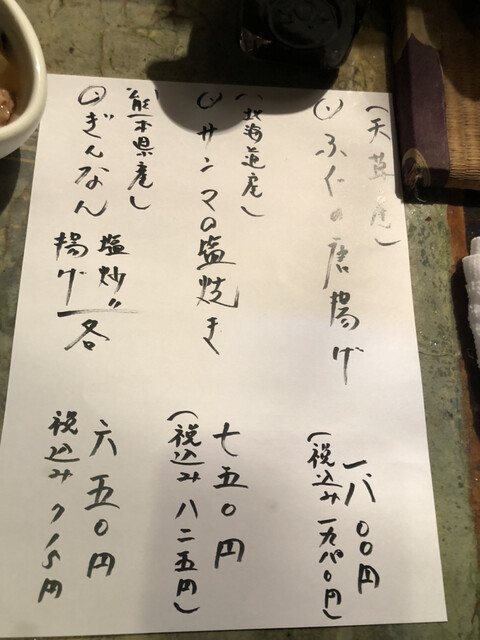 (天草産)
○ふぐの唐揚げ
一八〇〇円
(税込み一九八〇円)
(北海道産)
○サンマの塩焼き
七五〇円
(税込み八二五円)
(熊本県産)
○ぎんなん
塩炒り
揚げ
各
六五〇円
税込み715円